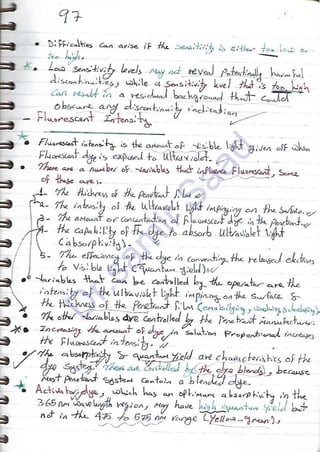 97
• Difficulties can arise if the sensitivity is either too low or
too high.
• Low sensitivity levels may not reveal potentially harmful
discontinuities, while a sensitivity level that is too high
can result in a residual background that could
obscure any discontinuity indication.
- Fluorescent Intensity
• Fluorescent intensity is the amount of visible light given off when
Fluorescent dye is exposed to Ultraviolet.
• There are a number of variables that influence Fluorescent, some
of these are:-
1- The thickness of the Penetrant film
2- The intensity of the Ultraviolet light impinging on the surface.
3- The amount or concentration of fluorescent dye in the penetrant
4- the capability of the dye to absorb Ultraviolet light
(absorptivity).
5- The efficiency of the dye in converting the released
to Visible light (quantum yield)
• Variables that can be controlled by the operator are the
intensity of the ultraviolet light impinging on the surface &
the thickness of the Penetrant film
• The other variables are controlled by the Penetrant manufacturer.
• Increasing the amount of dye in solution Proportional increases
the Fluorescent intensity.
• The absorptivity & quantum yield are characteristics of the
dye system, these are controlled by the dye blends, because
most penetrant system contain a blended dye.
• Activator dye, which has an optimum absorptivity in the
365 nm wavelength region, may have high quantum yield but
not in the 475 to 575 nm range (Yellow-green),